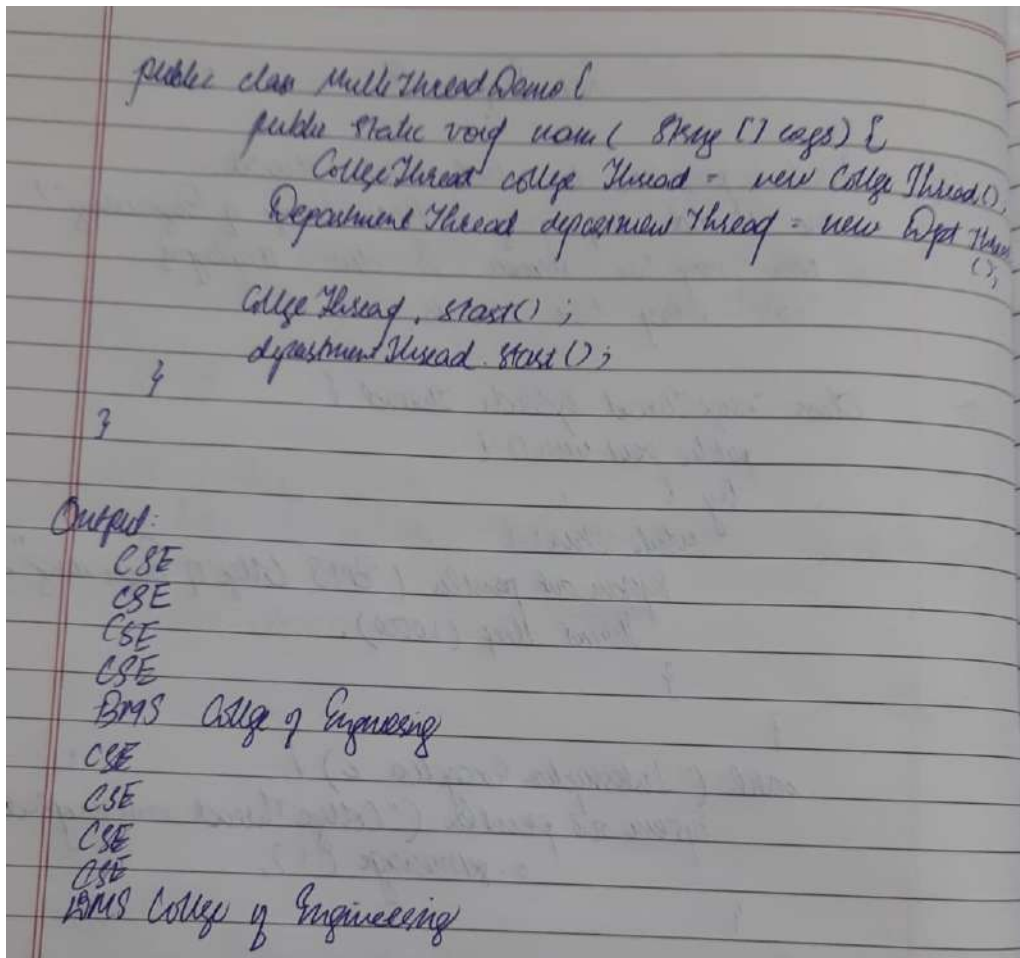 public class MultiThreadDemo {
public static void main ( String [] args) {
CollegeThread college Thread = new College Thread();
Department Thread department Thread = new Dept Thread
();
College Thread . start() ;
department Thread . start () ;
}
}
Output:
CSE
CSE
CSE
CSE
BMS College of Engineering
CSE
CSE
CSE
CSE
BMS College of Engineering